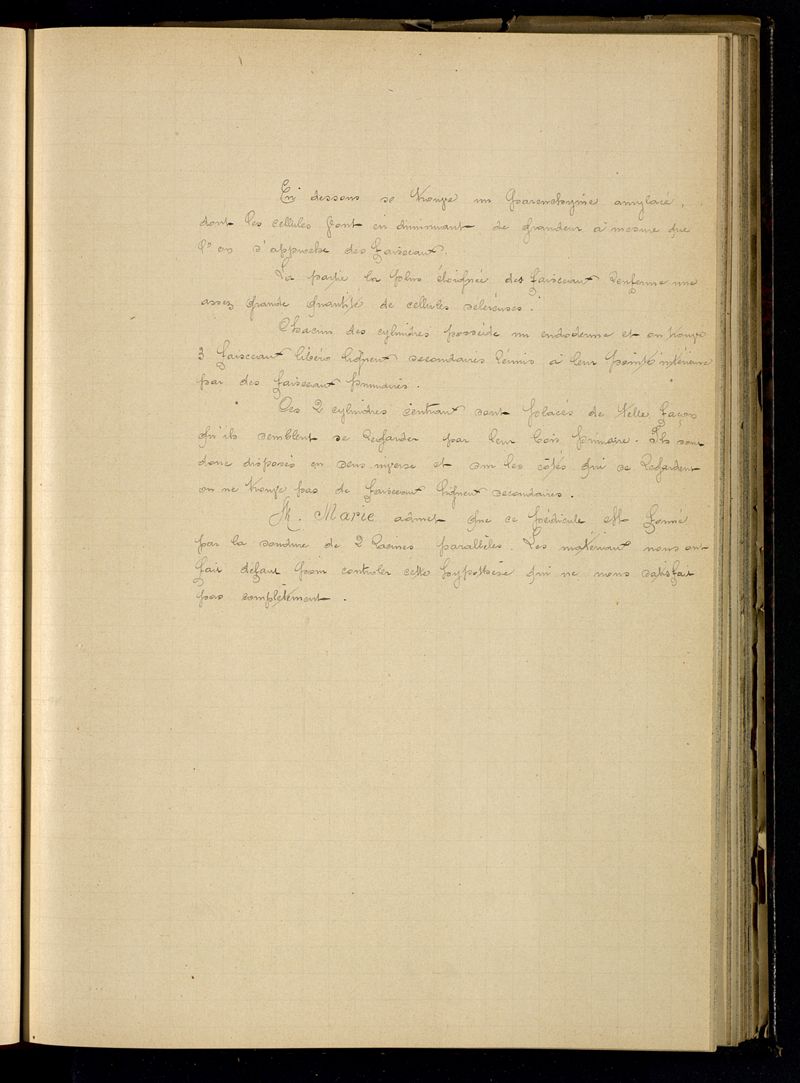 En dessous se trouve un parenchyme amylacé,
dont les cellules vont en diminuant de grandeur à mesure que
l'on s'approche des faisceaux.
La partie la plus éloignée des faisceaux renferme une
assez grande quantité de cellules scléreuses.
Chacun des cylindres possède un endoderme et on trouve
3 faisceaux libéro ligneux secondaires réunis à leur pointe intérieure
par des faisceaux primaires.
Ces 2 cylindres centraux sont placés de telle façon
qu'ils semblent se regarder par leur bois primaire. Ils sont
donc disposés en sens inverse et sur les côtés qui se regardent
on ne trouve pas de faisceaux ligneux secondaires.
M. Marié admet que ce pédicule est formé
par la soudure de 2 racines parallèles. Les matériaux nous ont
fait défaut pour controler cette hypothèse qui ne nous satisfait
pas complètement.